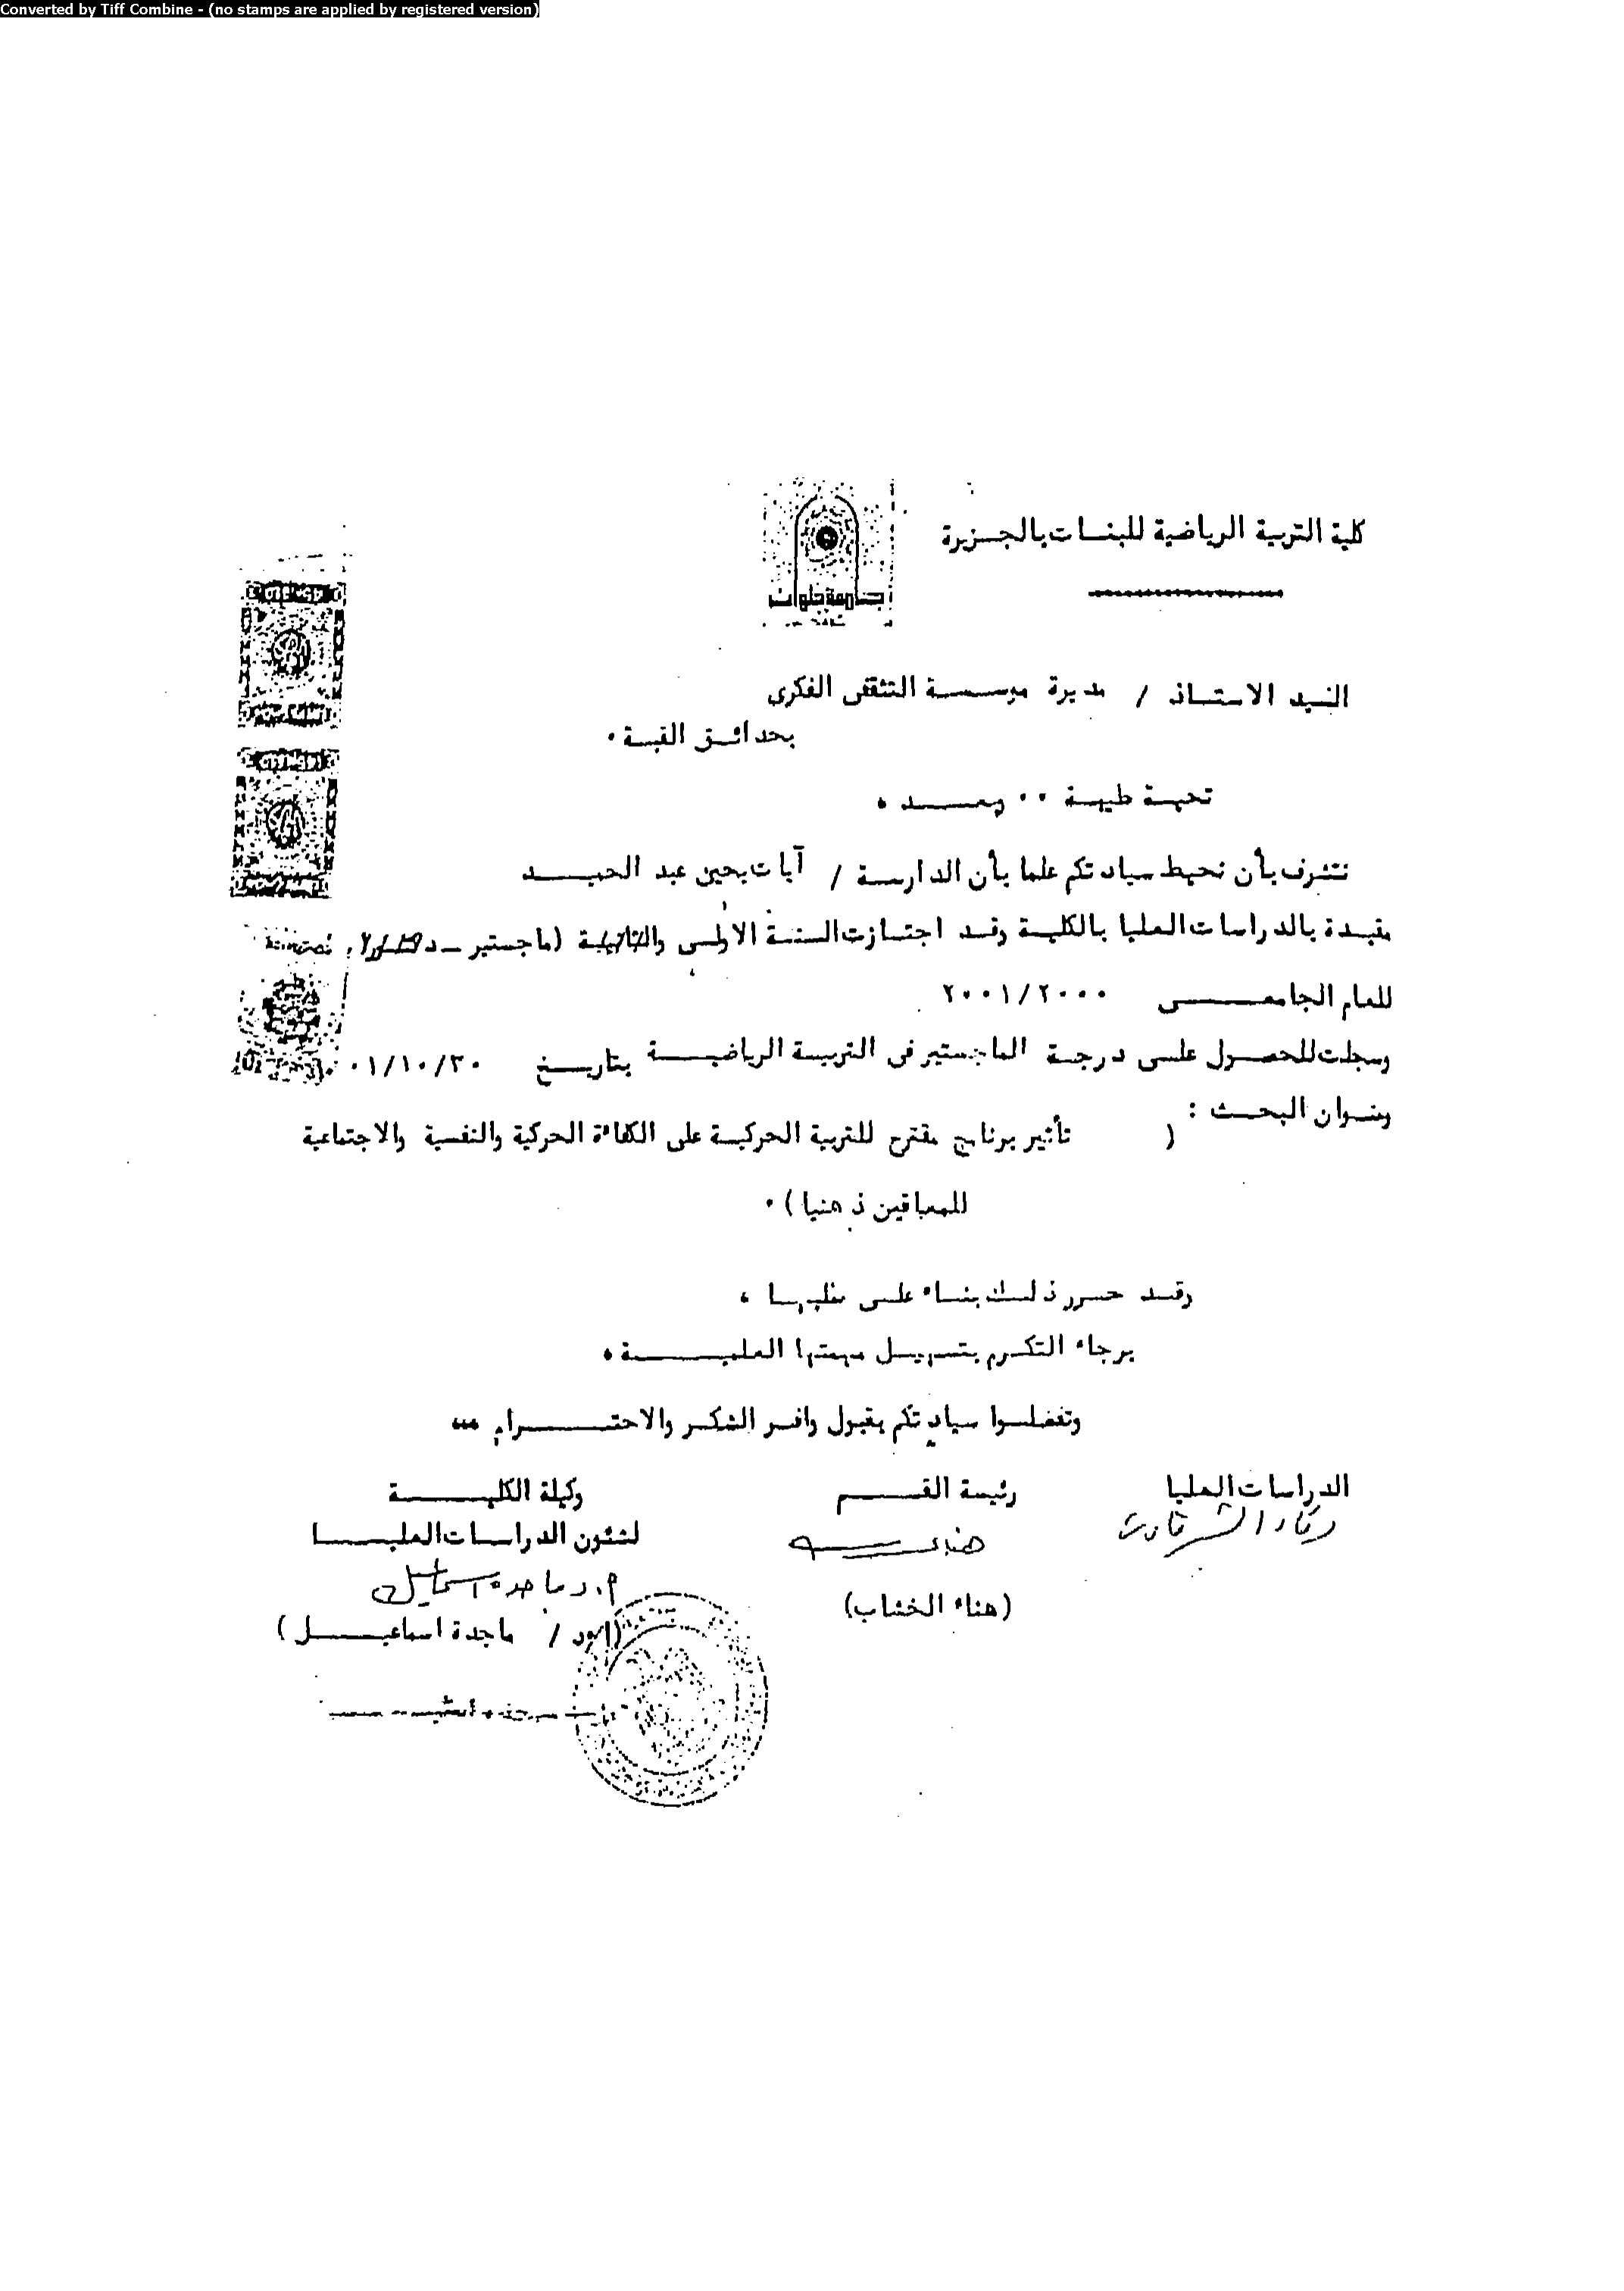 Converted by Tiff Combine - (no stamps are applied by registered version)
كلية التربية الرياضية للبنات بالجزيرة
جامعة حلوان
السيد الاستاذ / مديرة موسسة التثقفى الفكرى
بحدائق القبة ٠
تحية طيبة ٠٠ وبعد ،
نتشرف بأن نحيط سيادتكم علما بأن الدارسة / آيات يحيى عبد الحميد
مقيدة بالدراسات العليا بالكلية وقد اجتازت السنة الاولى والثانية (ماجستير ـ دكتوراه
للعام الجامعى ٢٠٠١/٢٠٠٠
وسجلت للحصول على درجة الماجستير فى التربية الرياضية بتاريخ ٠١/١٠/٣٠
وعنوان البحث :
( تأثير برنامج مقترح للتربية الحركية على الكفاءة الحركية والنفسية والاجتماعية
للمعاقين ذهنيا ) ٠
وقد حرر ذلك بناء على طلبها ،
برجاء التكرم بتسهيل مهمتها العلمية ،
وتفضلوا سيادتكم بقبول وافر الشكر والاحترام ،،،
الدراسات العليا رئيسة القسم وكيلة الكلية
لشئون الدراسات العليا
هناء
ا.د ماجدة اسماعيل
(هناء الخشاب)
(ا.د / ماجدة اسماعيل)